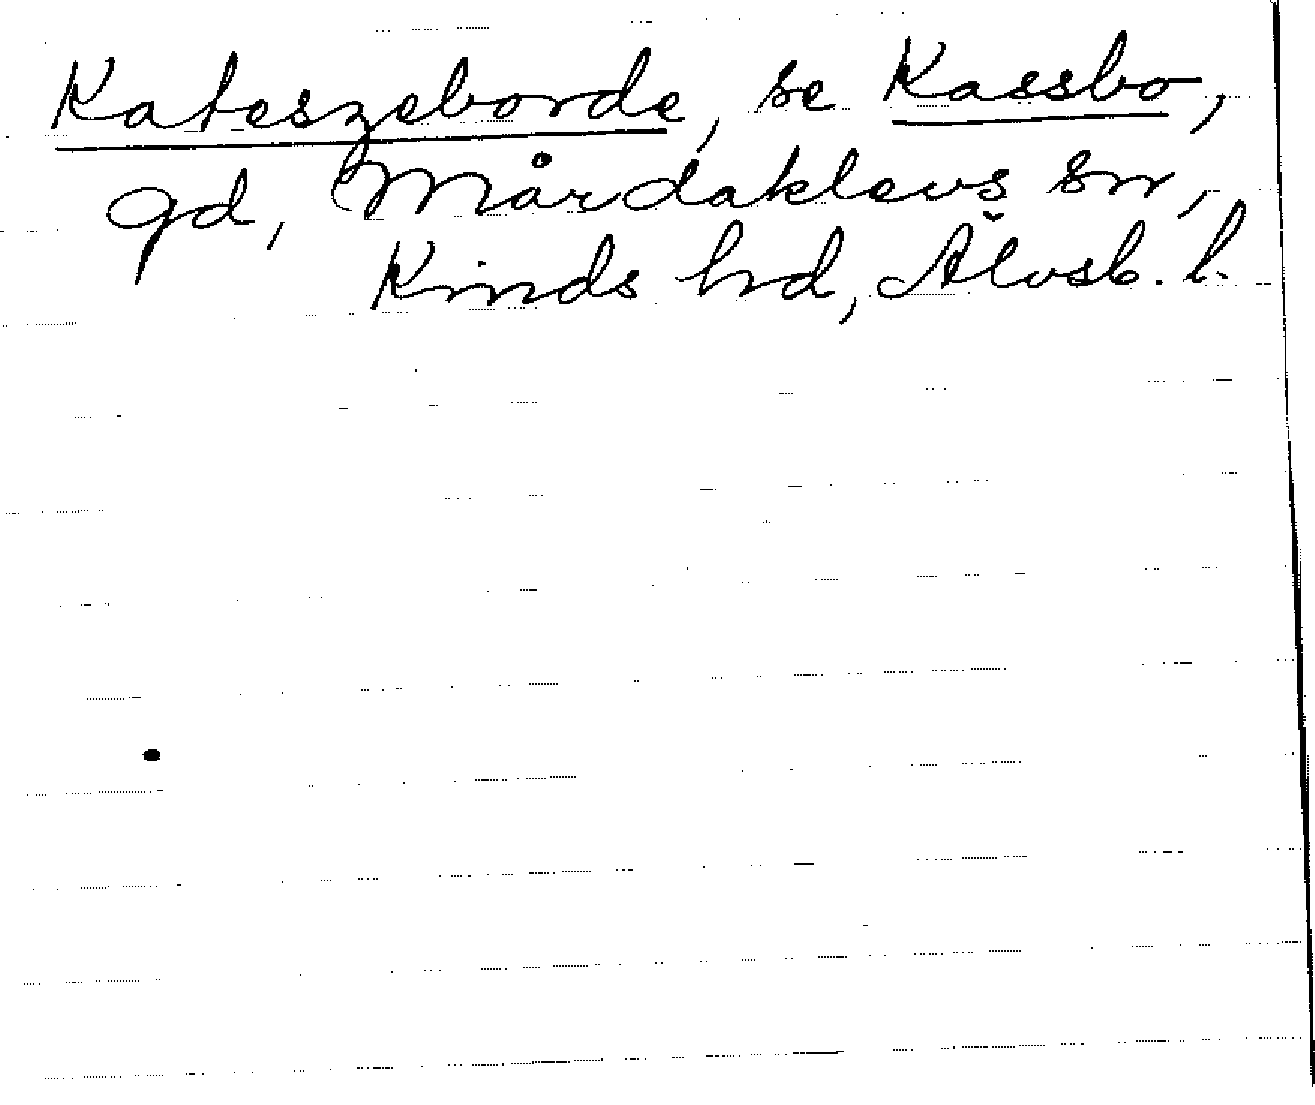 Kateszeborde, se Kassbo,
gd, Mårdaklevs sn,
Kinds hd, Älvsb. l.